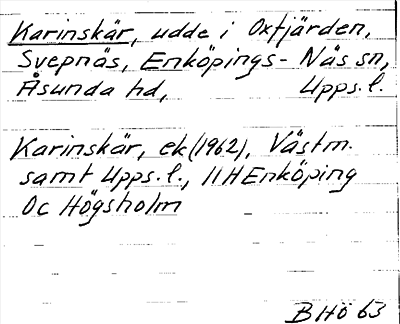 Karinskär, udde i Oxfjärden,
Svepnäs, Enköpings-Näs sn,
Åsunda hd, Upps.l.
Karinskär, ek (1962), Västm.
samt Upps.l., 11H Enköping
0c Högsholm
BHö 63